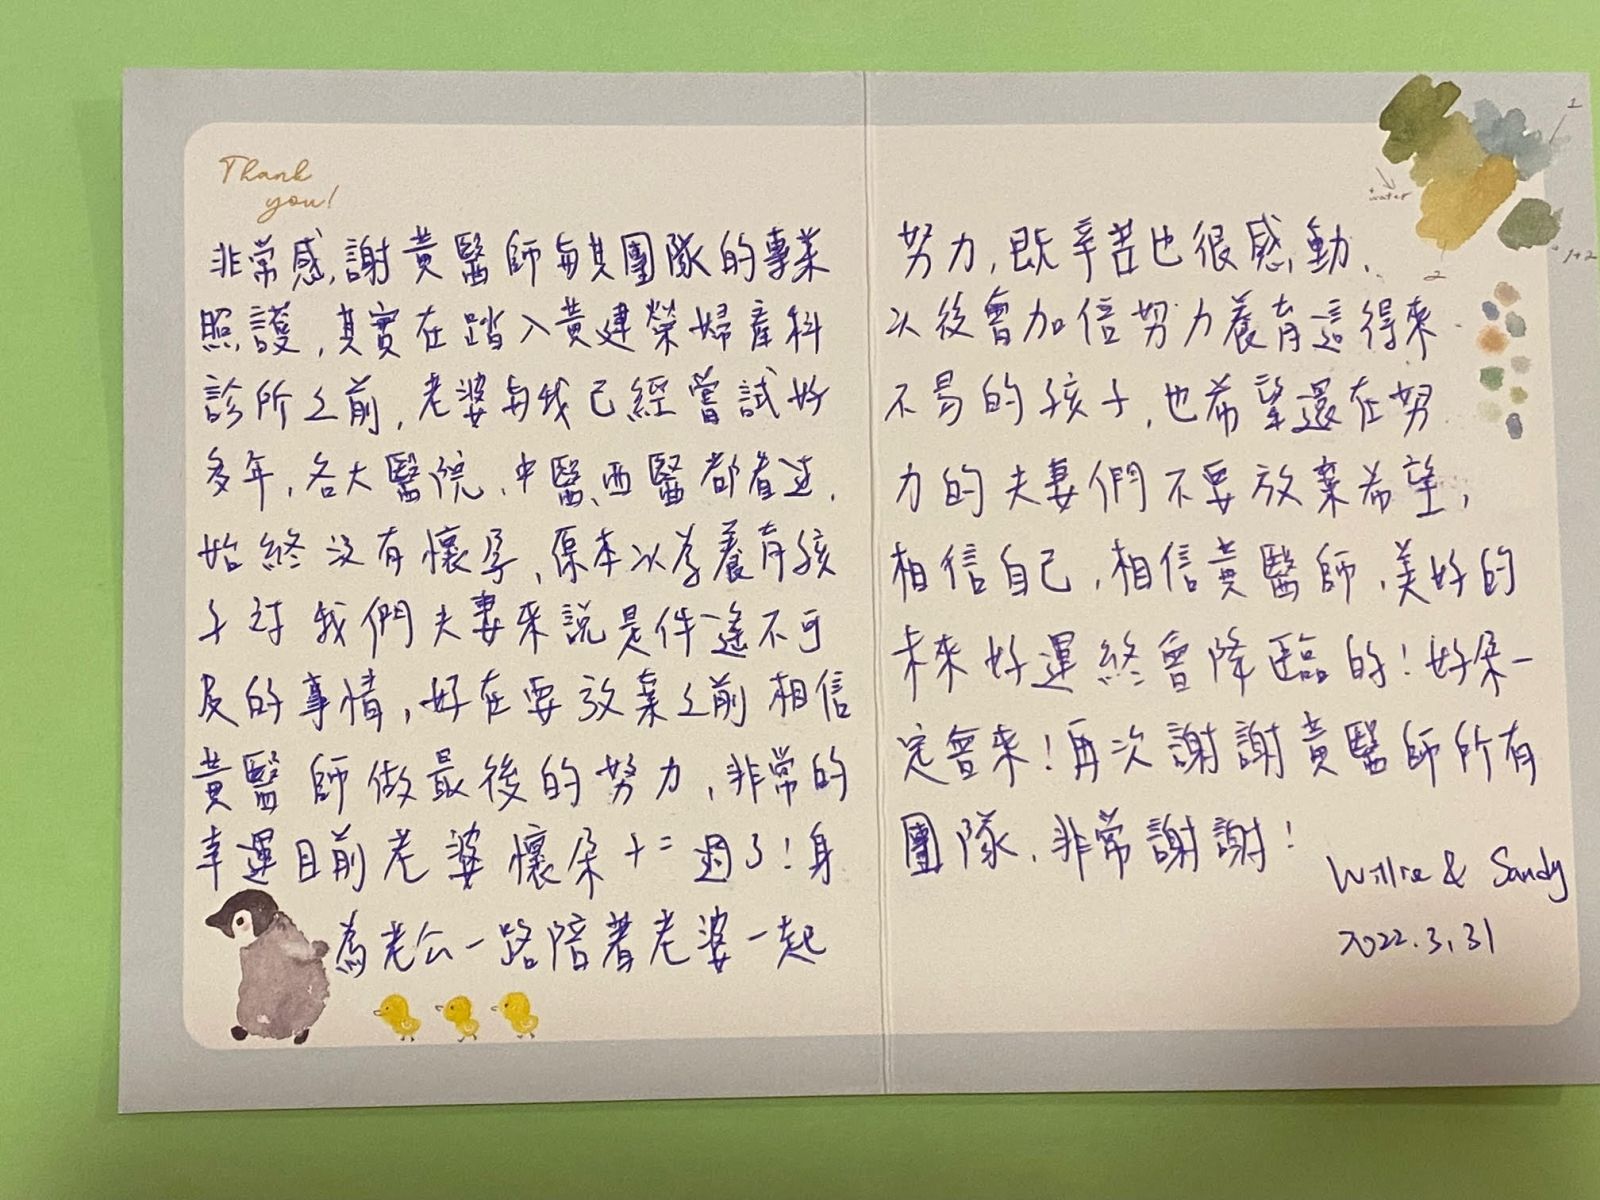 Thank
you!
非常感謝黃醫師與其團隊的專業
照護,其實在踏入黃建榮婦產科
診所之前,老婆與我已經嘗試好
多年,各大醫院、中醫、西醫都看過,
始終沒有懷孕,原本以為養育孩
子對我們夫妻來說是件遙不可
及的事情,好在要放棄之前相信
黃醫師做最後的努力,非常的
幸運目前老婆懷孕十二週了!身
為老公一路陪著老婆一起
努力,既辛苦也很感動、
以後會加倍努力養育這得來
不易的孩子,也希望還在努
力的夫妻們不要放棄希望,
相信自己,相信黃醫師,美好的
未來好運終會降臨的!好朵一
定會來!再次謝謝黃醫師所有
團隊、非常謝謝!
Willie & Sandy
2022.3.31
1
+water
2
1+2